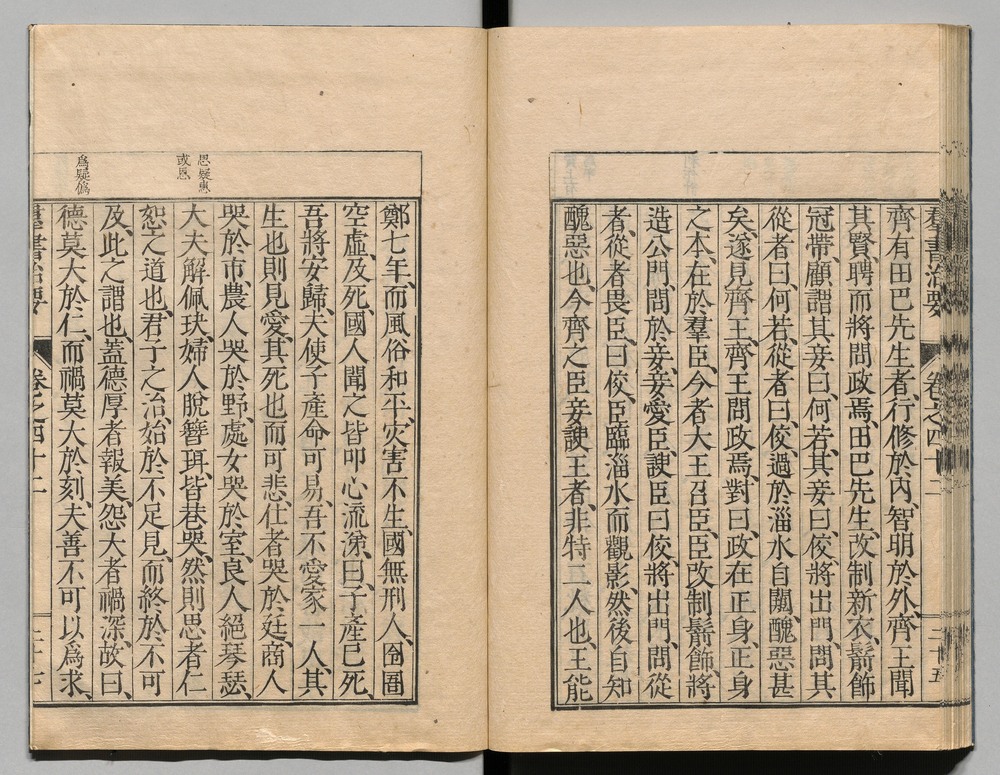 羣書治要 卷之四十二 二十五
齊有田巴先生者、行修於內、智明於外、齊王聞
其賢、聘而將問政焉、田巴先生、改制新衣、鬋飾
冠帶、顧謂其妾曰、何若、其妾曰、佼、將出門、問其
從者曰、何若、從者曰、佼、過於淄水自闚、醜惡甚
矣、遂見齊王、齊王問政焉、對曰、政在正身、正身
之本、在於羣臣、今者大王召臣、臣改制鬋飾、將
造公門、問於妾、妾愛臣、諛臣曰佼、將出門、問從
者、從者畏臣、曰佼、臣臨淄水而觀影、然後自知
醜惡也、今齊之臣妾諛王者、非特二人也、王能
思疑惠
或恩
爲疑僞
鄭七年、而風俗和平、灾害不生、國無刑人、囹圄
空虛、及死、國人聞之皆叩心流涕、曰、子產已死、
吾將安歸、夫使子產命可易、吾不愛家一人、其
生也則見愛其死也而可悲、仕者哭於廷、商人
哭於市、農人哭於野、處女哭於室、良人絕琴瑟、
大夫解佩玦、婦人脫簪珥、皆巷哭、然則思者仁
恕之道也、君子之治、始於不足見、而終於不可
及、此之謂也、蓋德厚者報美、怨大者禍深、故曰、
德莫大於仁、而禍莫大於刻、夫善不可以爲求、
羣書治要 卷之四十二